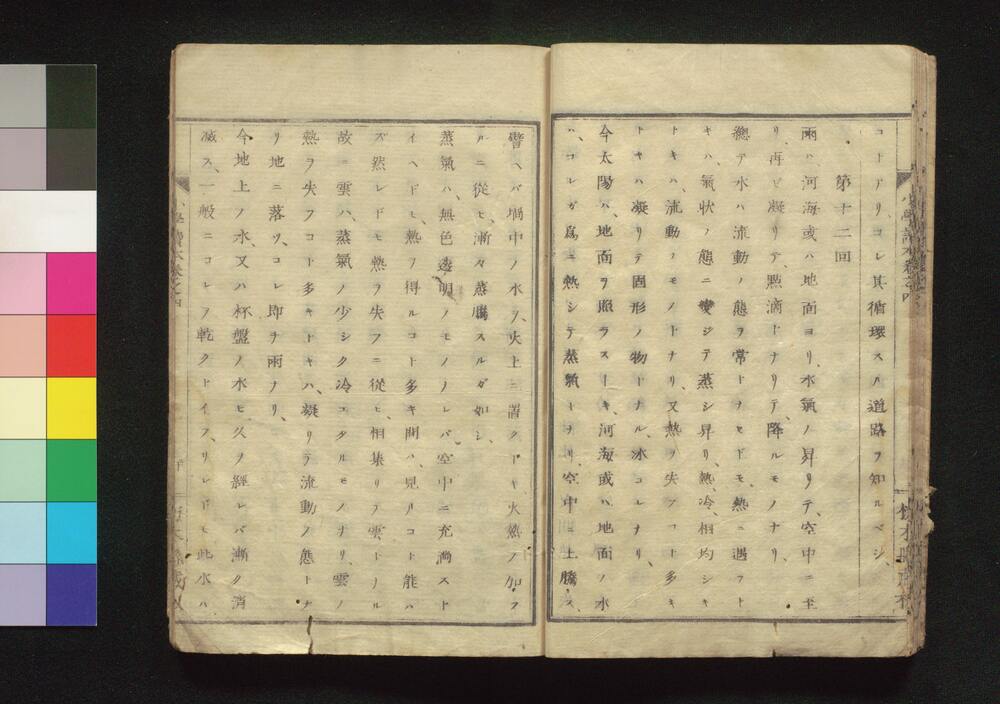 コトアリ、コレ其循環スル道路ヲ知ルベシ、
第十二回
雨ハ河海或ハ地面ヨリ、水氣ノ昇リテ、空中ニ至
リ、再ビ凝リテ、點滴トナリテ、降ルモノナリ、
總テ水ハ流動ノ態ヲ常トナセドモ、熱ニ遇フト
キハ、氣狀ノ態ニ變ジテ蒸シ昇リ、熱、冷、相均シキ
トキハ、流動ノモノトナリ、又熱ヲ失フコト多キ
トキハ、凝リテ固形ノ物トナル、氷コレナリ、
今太陽ハ、地面ヲ照ラストキ、河海或ハ地面ノ水
ハ、コレガ爲ニ熱シテ蒸氣トナリ、空中ニ上騰ス、
譬ヘバ堝中ノ水ヲ、火上ニ置クトキ、火熱ノ加フ
ルニ從ヒ、漸々蒸騰スルガ如シ、
蒸氣ハ、無色透明ノモノナレバ、空中ニ充滿スト
イヘドモ、熱ヲ得ルコト多キ間ハ、見ルコト能ハ
ズ、然レドモ熱ヲ失フニ從ヒ、相集リテ雲トナル
故ニ雲ハ、蒸氣ノ少シク冷エタルモノナリ、雲ノ
熱ヲ失フコト多キトキハ、凝リテ流動ノ態トナ
リ、地ニ落ツ、コレ即チ雨ナリ、
今地上ノ水、又ハ杯盤ノ水モ、久ヲ經レバ漸ク消
滅ス、一般ニコレヲ乾クトイフ、サレドモ此水ハ
小學讀本卷之四